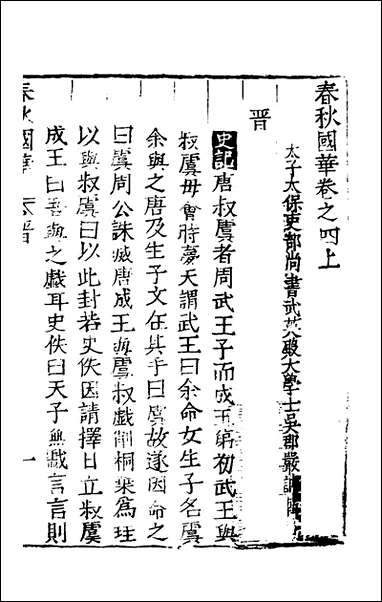 春秋國華卷之四上
太子太保吏部尚書武英殿大學士吳郡嚴訥
晉
史記唐叔虞者周武王子而成王弟初武王與
叔虞母會時夢天謂武王曰余命女生子名虞
余與之唐及生子文在其手曰虞故遂因命之
曰虞周公誅滅唐成王與虞叔戲削桐葉為珪
以與叔虞曰以此封若史佚因請擇日立叔虞
成王曰吾與之戲耳史佚曰天子無戲言言則
春秋國華 晉 一